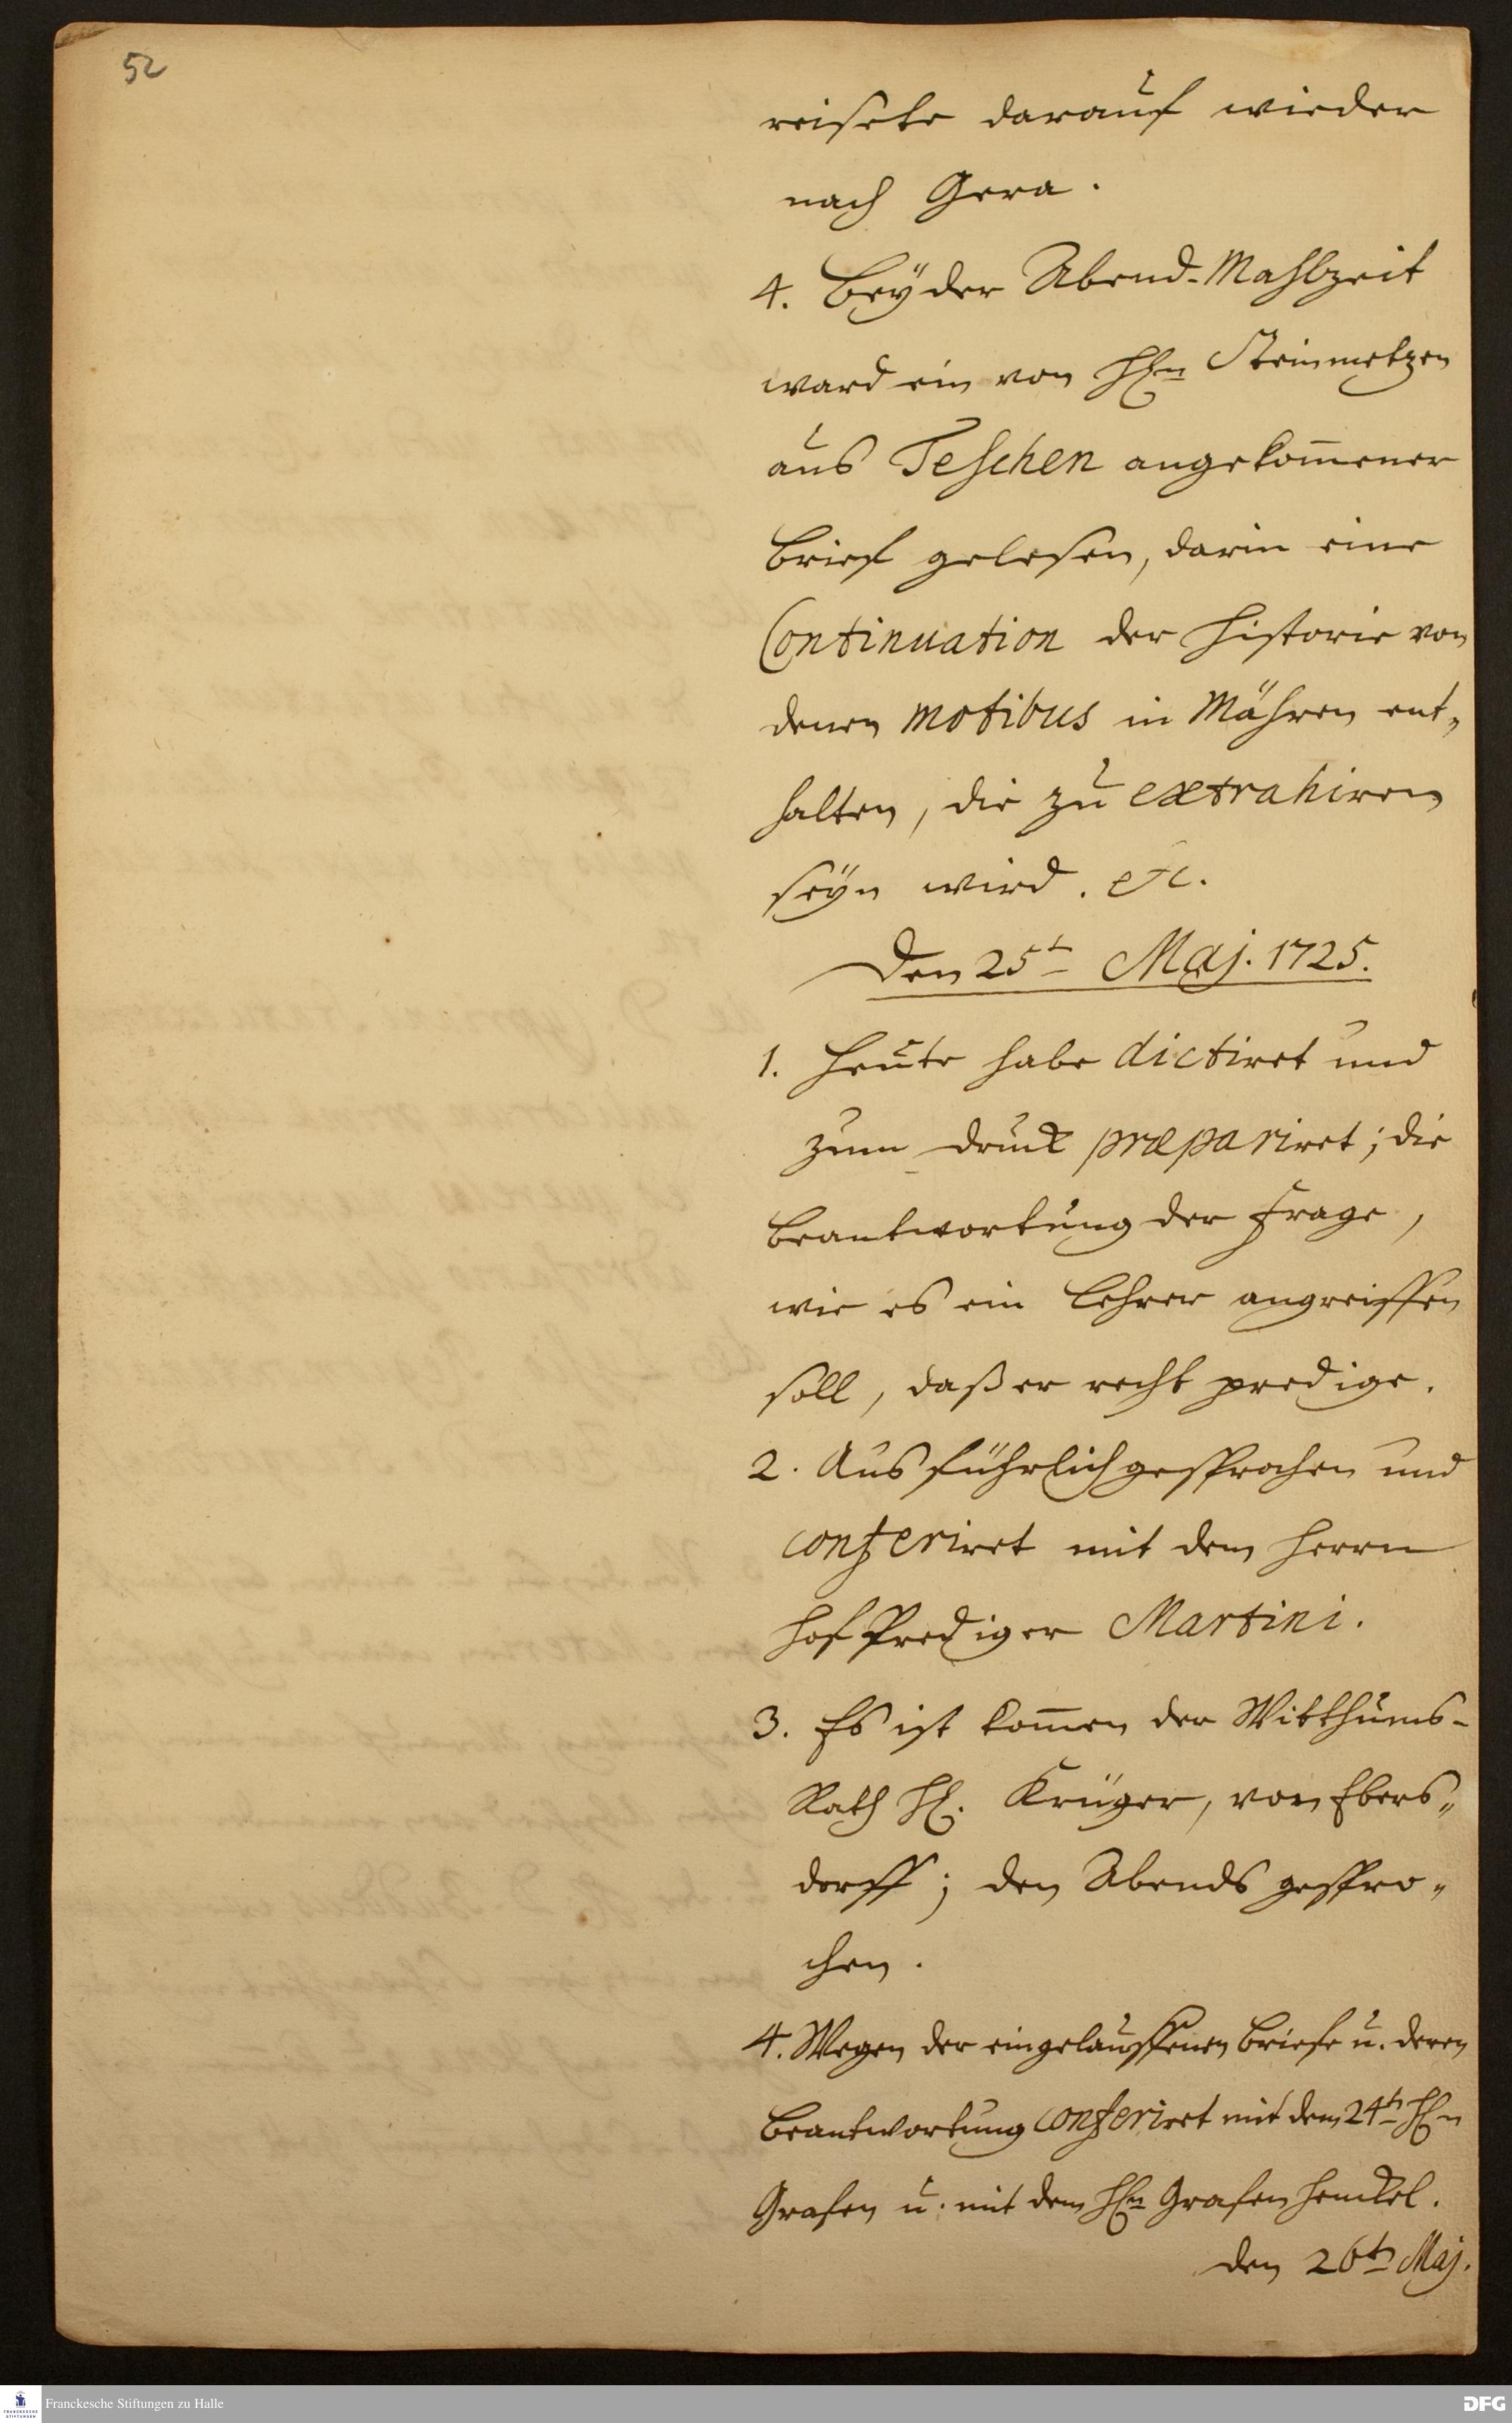 52
reisete darauf wieder
nach Gera.
4. Bey der Abend-Mahlzeit
ward ein von HEn Steinmetzen
aus Teschen angekom̄ener
Brief gelesen, darin eine
Continuation der Historie von
denen motibus in Mähren ent„
halten, die zu extrahiren
seÿn wird. etc.
Den 25t Maj. 1725.
1. Heute habe dictiret und
zum Druck præpariret; die
Beantwortung der Frage,
wie es ein Lehrer angreiffen
soll, daß er recht predige.
2. Ausführlich gesprochen und
conferiret mit dem Herrn
Hof Prediger Martini.
3. Es ist kom̄en der Witthums-
Rath HE. Krüger, von Ebers„
dorff; den Abends gespro„
chen.
4. Wegen der eingelauffenen Briefe u. deren
Beantwortung conferiret mit dem 24t HEn
Grafen u. mit dem HEn Grafen Henckel.
den 26t Maj.
Franckesche Stiftungen zu Halle
DFG